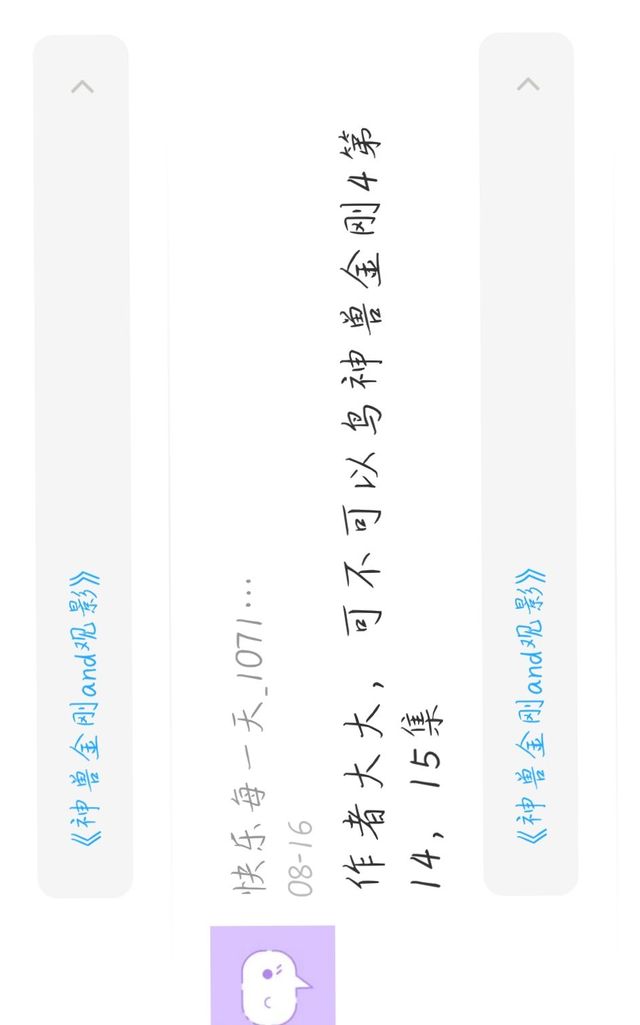 《神兽金刚and观影》
快乐每一天_1071...
08-16
作者大大，可不可以鸟神兽金刚4第
14，15集
《神兽金刚and观影》